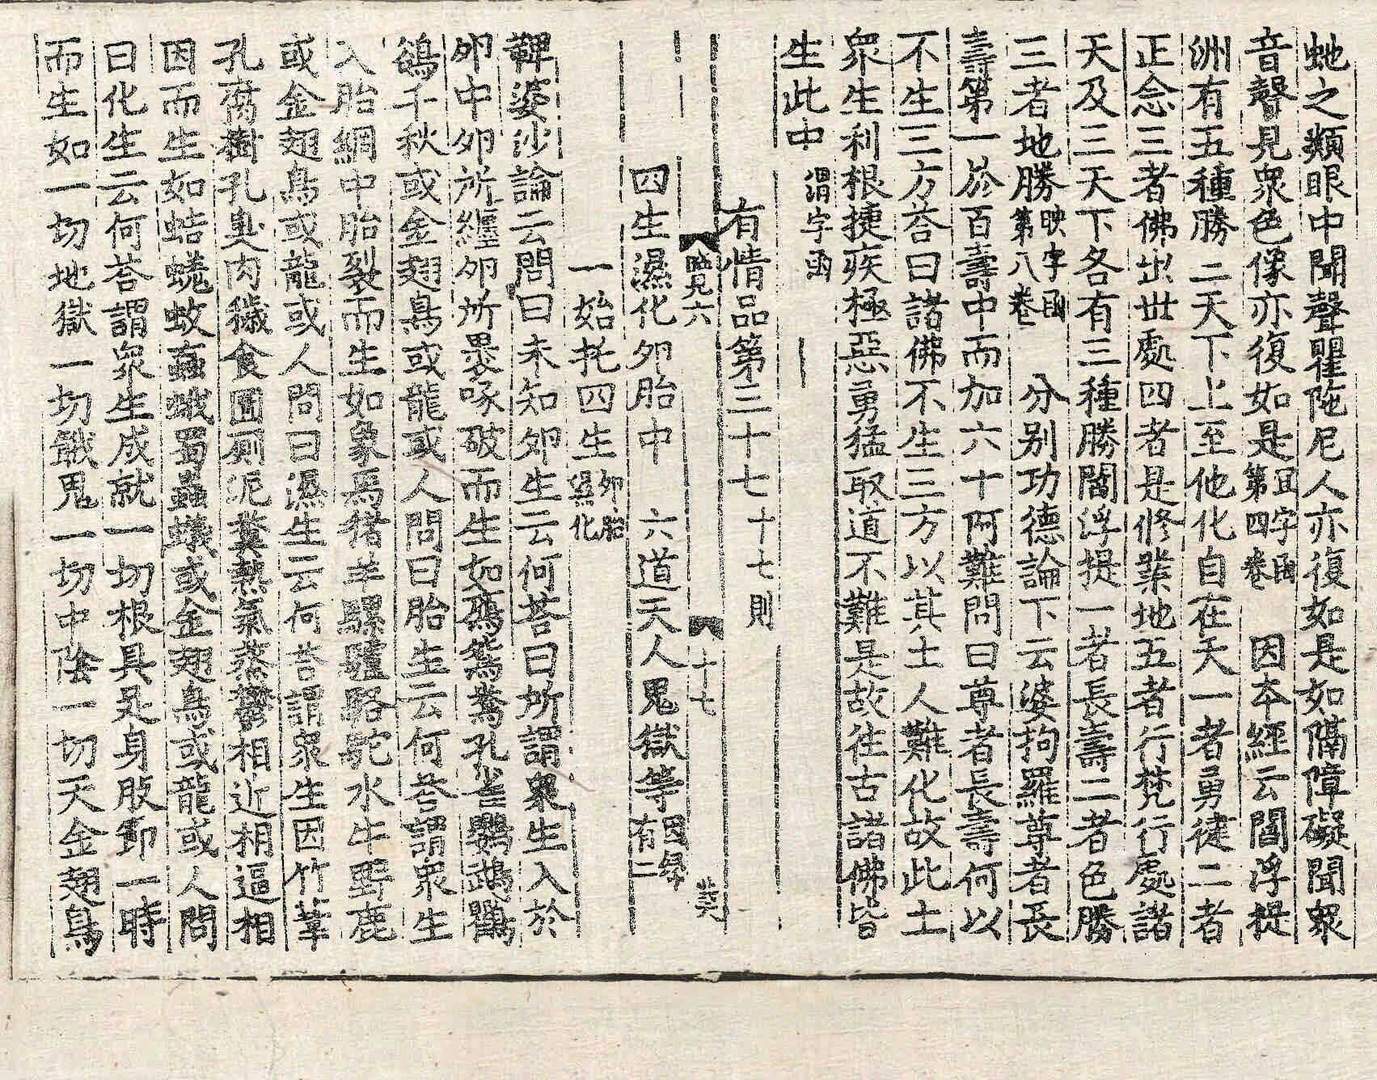 虵之類眼中聞聲瞿陁尼人亦復如是如隔障礙聞衆
音聲見衆色像亦復如是宜字函第四卷　因本經云閻浮提
洲有五種勝二天下上至他化自在天一者勇徤二者
正念三者佛出世處四者是修業地五者行梵行處諸
天及三天下各有三種勝閻浮提一者長壽二者色勝
三者地勝映字函第八卷　分別功德論下云婆拘羅尊者長
壽第一於百壽中而加六十阿難問曰尊者長壽何以
不生三方荅曰諸佛不生三方以其土人難化故此土
衆生利根捷疾極惡勇猛取道不難是故往古諸佛皆
生此中渭字函
有情品第三十七十七則
覽六　十七
四生濕化卵胎中　六道天人鬼獄等因緣有二
一始托四生卵胎濕化
鞞婆沙論云問曰未知卵生云何荅曰所謂衆生入於
卵中卵所纏卵所褁啄破而生如鴈鴛鴦孔雀鸚鵡鸜
鵒千秋或金翅鳥或龍或人問曰胎生云何荅謂衆生
入胎網中胎裂而生如象馬猪羊騾驢駱駝水牛野鹿
或金翅鳥或龍或人問曰濕生云何荅謂衆生因竹葦
孔腐樹孔臭肉穢食圊厠泥糞熱氣蒸鬱相近相逼相
因而生如蛣蟯蚊蝱蛾蜀蟲蟻或金翅鳥或龍或人問
曰化生云何荅謂衆生成就一切根具足身肢節一時
而生如一切地獄一切餓鬼一切中陰一切天金翅鳥